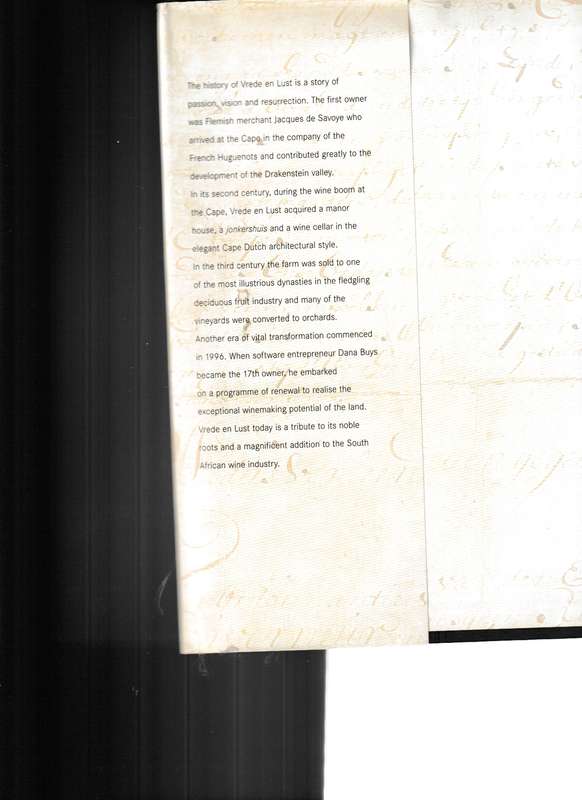 The history of Vrede en Lust is a story of
passion, vision and resurrection. The first owner
was Flemish merchant Jacques de Savoye who
arrived at the Cape in the company of the
French Huguenots and contributed greatly to the
development of the Drakenstein valley.
In its second century, during the wine boom at
the Cape, Vrede en Lust acquired a manor
house, a jonkershuis and a wine cellar in the
elegant Cape Dutch architectural style.
In the third century the farm was sold to one
of the most illustrious dynasties in the fledgling
deciduous fruit industry and many of the
vineyards were converted to orchards.
Another era of vital transformation commenced
in 1996. When software entrepreneur Dana Buys
became the 17th owner, he embarked
on a programme of renewal to realise the
exceptional winemaking potential of the land.
Vrede en Lust today is a tribute to its noble
roots and a magnificent addition to the South
African wine industry.